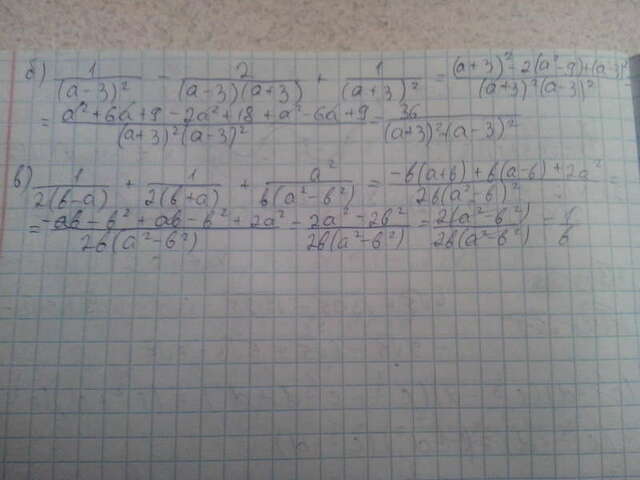 б) 1/(a-3)² - 2/((a-3)(a+3)) + 1/(a+3)² = ((a+3)² - 2(a²-9) + (a-3)²)/((a+3)²(a-3)²) =
= (a² + 6a + 9 - 2a² + 18 + a² - 6a + 9)/((a+3)²(a-3)²) = 36/((a+3)²(a-3)²)
в) 1/(2(b-a)) + 1/(2(b+a)) + a²/(b(a²-b²)) = (-b(a+b) + b(a-b) + 2a²)/(2b(a²-b)²) =
= (-ab - b² + ab - b² + 2a²)/(2b(a²-b²)) = (2a² - 2b²)/(2b(a²-b²)) = 2(a²-b²)/(2b(a²-b²)) = 1/b